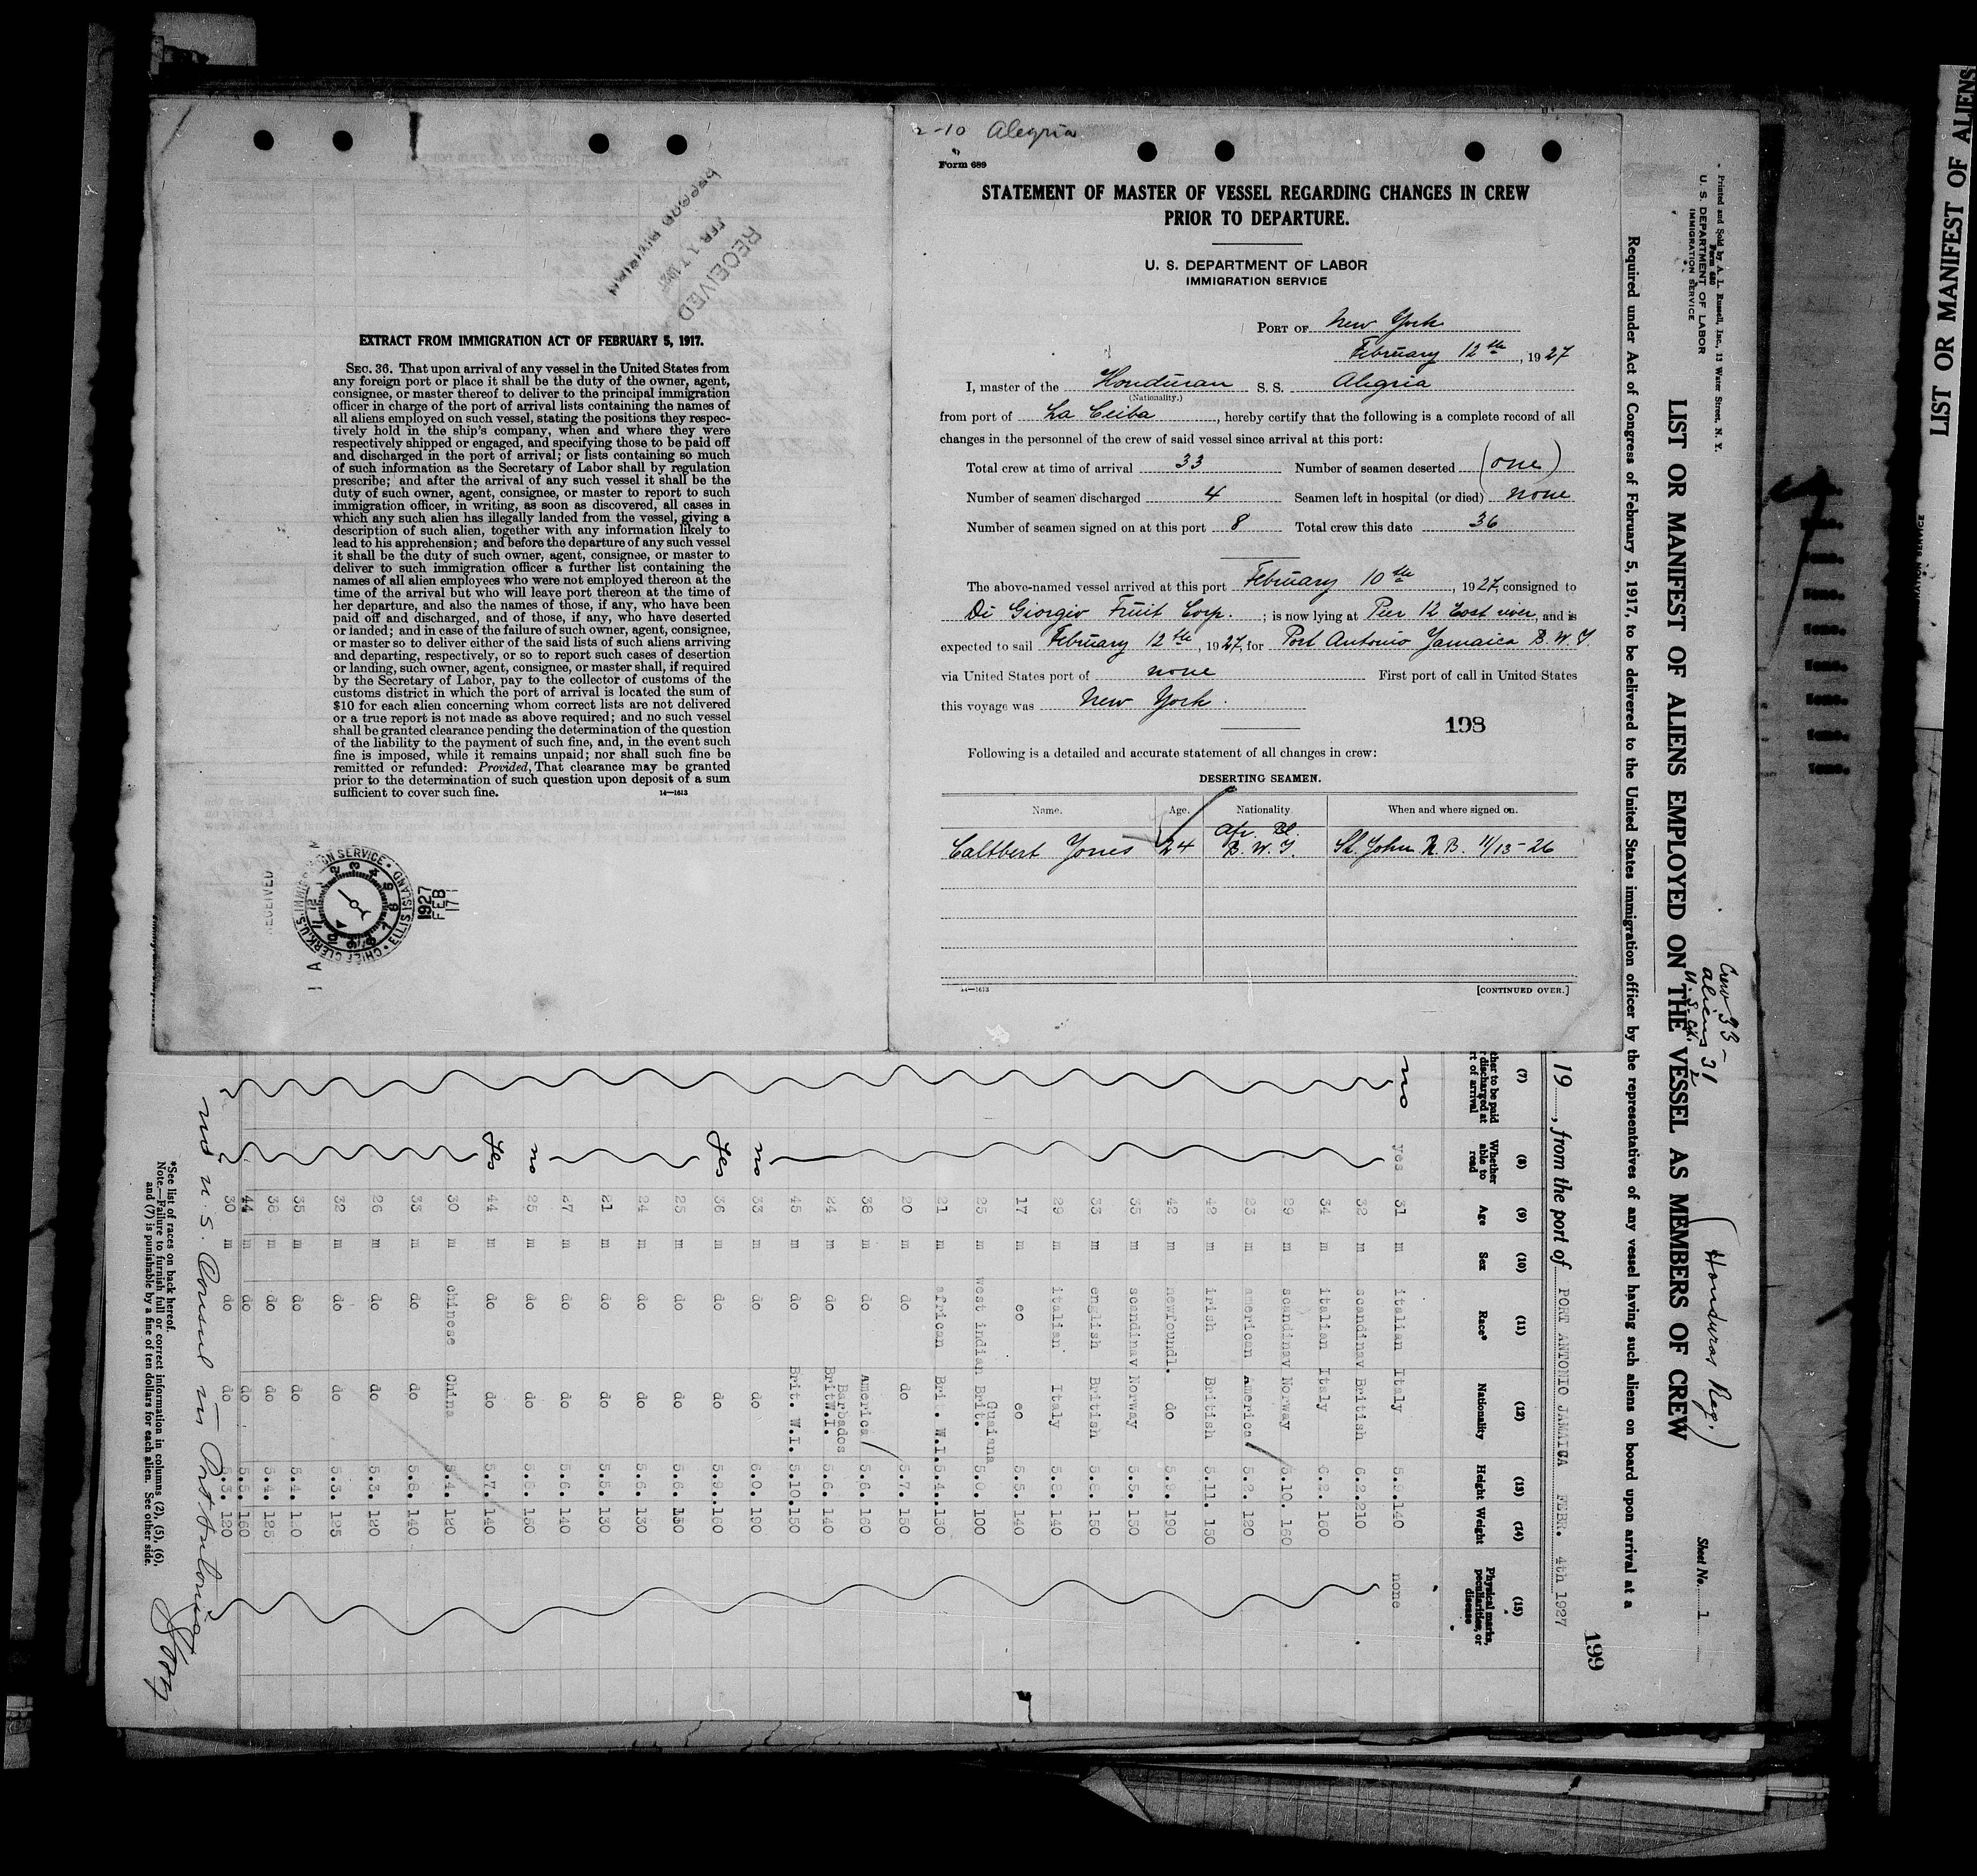 EXTRACT FROM IMMIGRATION ACT OF FEBRUARY 5, 1917.
SEC. 36. That upon arrival of any vessel in the United States from
any foreign port or place it shall be the duty of the owner, agent,
consignee, or master thereof to deliver to the principal immigration
officer in charge of the port of arrival lists containing the names of
all aliens employed on such vessel, stating the positions they respec-
tively hold in the ship's company, when and where they were
respectively shipped or engaged, and specifying those to be paid off
and discharged in the port of arrival; or lists containing so much
of such information as the Secretary of Labor shall by regulation
prescribe; and after the arrival of any such vessel it shall be the
duty of such owner, agent, consignee, or master to report to such
immigration officer, in writing, as soon as discovered, all cases in
which any such alien has illegally landed from the vessel, giving a
description of such alien, together with any information likely to
lead to his apprehension; and before the departure of any such vessel
it shall be the duty of such owner, agent, consignee, or master to
deliver to such immigration officer a further list containing the
names of all alien employees who were not employed thereon at the
time of the arrival but who will leave port thereon at the time of
her departure, and also the names of those, if any, who have been
paid off and discharged, and of those, if any, who have deserted
or landed; and in case of the failure of such owner, agent, consignee,
or master so to deliver either of the said lists of such aliens arriving
and departing, respectively, or so to report such cases of desertion
or landing, such owner, agent, consignee, or master shall, if required
by the Secretary of Labor, pay to the collector of customs of the
customs district in which the port of arrival is located the sum of
$10 for each alien concerning whom correct lists are not delivered
or a true report is not made as above required; and no such vessel
shall be granted clearance pending the determination of the question
of the liability to the payment of such fine, and, in the event such
fine is imposed, while it remains unpaid; nor shall such fine be
remitted or refunded: Provided, That clearance may be granted
prior to the determination of such question upon deposit of a sum
sufficient to cover such fine.
14—1613
RECEIVED
FEB 17 192
RECORD DIVISION
RECEIVED
CHIEF CLERK, U.S. IMMIGRATION SERVICE • ELLIS ISLAND
1927
FEB
17
A
2-10 Alegria
Form 689
STATEMENT OF MASTER OF VESSEL REGARDING CHANGES IN CREW
PRIOR TO DEPARTURE.
U. S. DEPARTMENT OF LABOR
IMMIGRATION SERVICE
PORT OF New York
February 12th, 1927
I, master of the Honduran S. S. Alegria
(Nationality.)
from port of La Ceiba, hereby certify that the following is a complete record of all
changes in the personnel of the crew of said vessel since arrival at this port:
Total crew at time of arrival 33 Number of seamen deserted (one)
Number of seamen discharged 4 Seamen left in hospital (or died) none
Number of seamen signed on at this port 8 Total crew this date 36
The above-named vessel arrived at this port February 10th, 1927, consigned to
Di Giorgio Fruit Corp. ; is now lying at Pier 12 East river, and is
expected to sail February 12th, 1927, for Port Antonio Jamaica B. W. I.
via United States port of none First port of call in United States
this voyage was New York.
198
Following is a detailed and accurate statement of all changes in crew:
DESERTING SEAMEN.
Name. Age. Nationality. When and where signed on.
Afr. Bl.
Caltbert Jones 24 B. W. I. St. John N. B. 11/13-26
14—1613
[CONTINUED OVER.]
Printed and Sold by A. L. Russell, Inc., 13 Water Street, N. Y.
Form 680
U. S. DEPARTMENT OF LABOR
IMMIGRATION SERVICE
Crew 33 -
aliens 31
U.S. Cit. 2
(Honduras Reg.)
Sheet No. 1
LIST OR MANIFEST OF ALIENS EMPLOYED ON THE VESSEL AS MEMBERS OF CREW
Required under Act of Congress of February 5, 1917, to be delivered to the United States immigration officer by the representatives of any vessel having such aliens on board upon arrival at a
199
19 , from the port of PORT ANTONIO JAMAICA FEBR. 4th 1927
(7) (8) (9) (10) (11) (12) (13) (14) (15)
ther to be paid
discharged at
rt of arrival
Whether able to read
Age Sex Race* Nationality Height Weight
Physical marks, peculiarities, or disease
no yes 31 m italian Italy 5.9. 140 none
32 m scandinav British 6.2. 210
34 m italian Italy 6.2. 160
29 m scandinav Norway 5.10. 160
23 m american America 5.2. 120
42 m irish British 5.11. 150
42 m newfoundl. do 5.9. 190
35 m scandinav Norway 5.5. 150
33 m english British 5.8. 150
29 m italian Italy 5.8. 140
17 m eo eo 5.5. 140
25 m west indian Brit. Guaiana 5.0. 100
21 m african Brit. W.I. 5.4. 130
20 m do do 5.7. 150
38 m do America 5.6. 160
24 m do Barbados Brit W.I. 5.6. 140
45 m do Brit. W.I. 5.10. 150
no 33 m do do 6.0. 190
Yes 36 m do do 5.9. 160
25 m do do 5.6. 150
24 m do do 5.6. 130
21 m do do 5.5. 130
27 m do do 5.6. 140
no 25 m do do 5.5. 150
Yes 44 m do do 5.7. 140
30 m chinese China 5.4. 120
33 m do do 5.8. 140
26 m do do 5.3. 120
32 m do do 5.3. 125
35 m do do 5.4. 120
38 m do do 5.4. 125
44 m do do 5.5. 160
30 m do do 5.3. 120
no U. S. Consul in Port Antonio
*See list of races on back hereof.
Note.—Failure to furnish full or correct information in columns (2), (5), (6),
and (7) is punishable by a fine of ten dollars for each alien. See other side.
LIST OR MANIFEST OF ALIENS